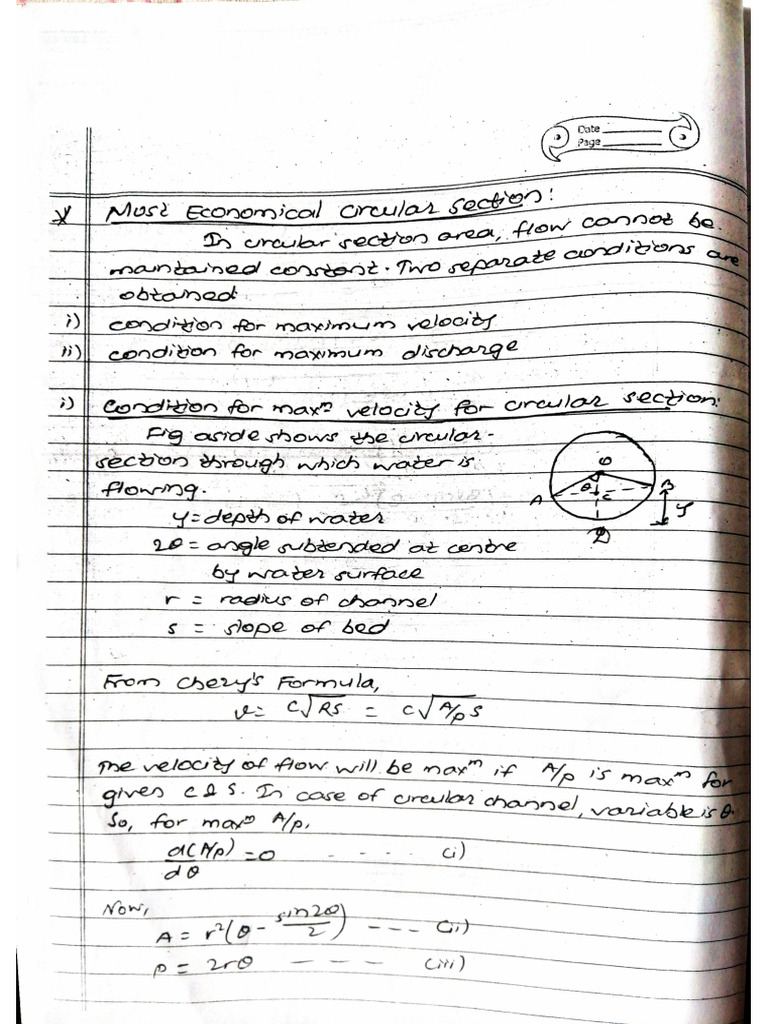 Date
Page
* Most Economical circular section:
In circular section area, flow cannot be
maintained constant. Two separate conditions are
obtained
i) condition for maximum velocity
ii) condition for maximum discharge
i) Condition for maxm velocity for circular section:
Fig aside shows the circular-
section through which water is
flowing.
O
θ
A
C
B
y
D
y = depth of water
2θ = angle subtended at centre
by water surface
r = radius of channel
s = slope of bed
From Chezy's Formula,
v = C√RS = C√A/P S
The velocity of flow will be maxm if A/P is maxm for
given C & S. In case of circular channel, variable is θ.
So, for maxm A/P,
d(A/P)/dθ = 0 - - - - - (i)
Now,
A = r²(θ - sin2θ/2) - - - - (ii)
P = 2rθ - - - (iii)